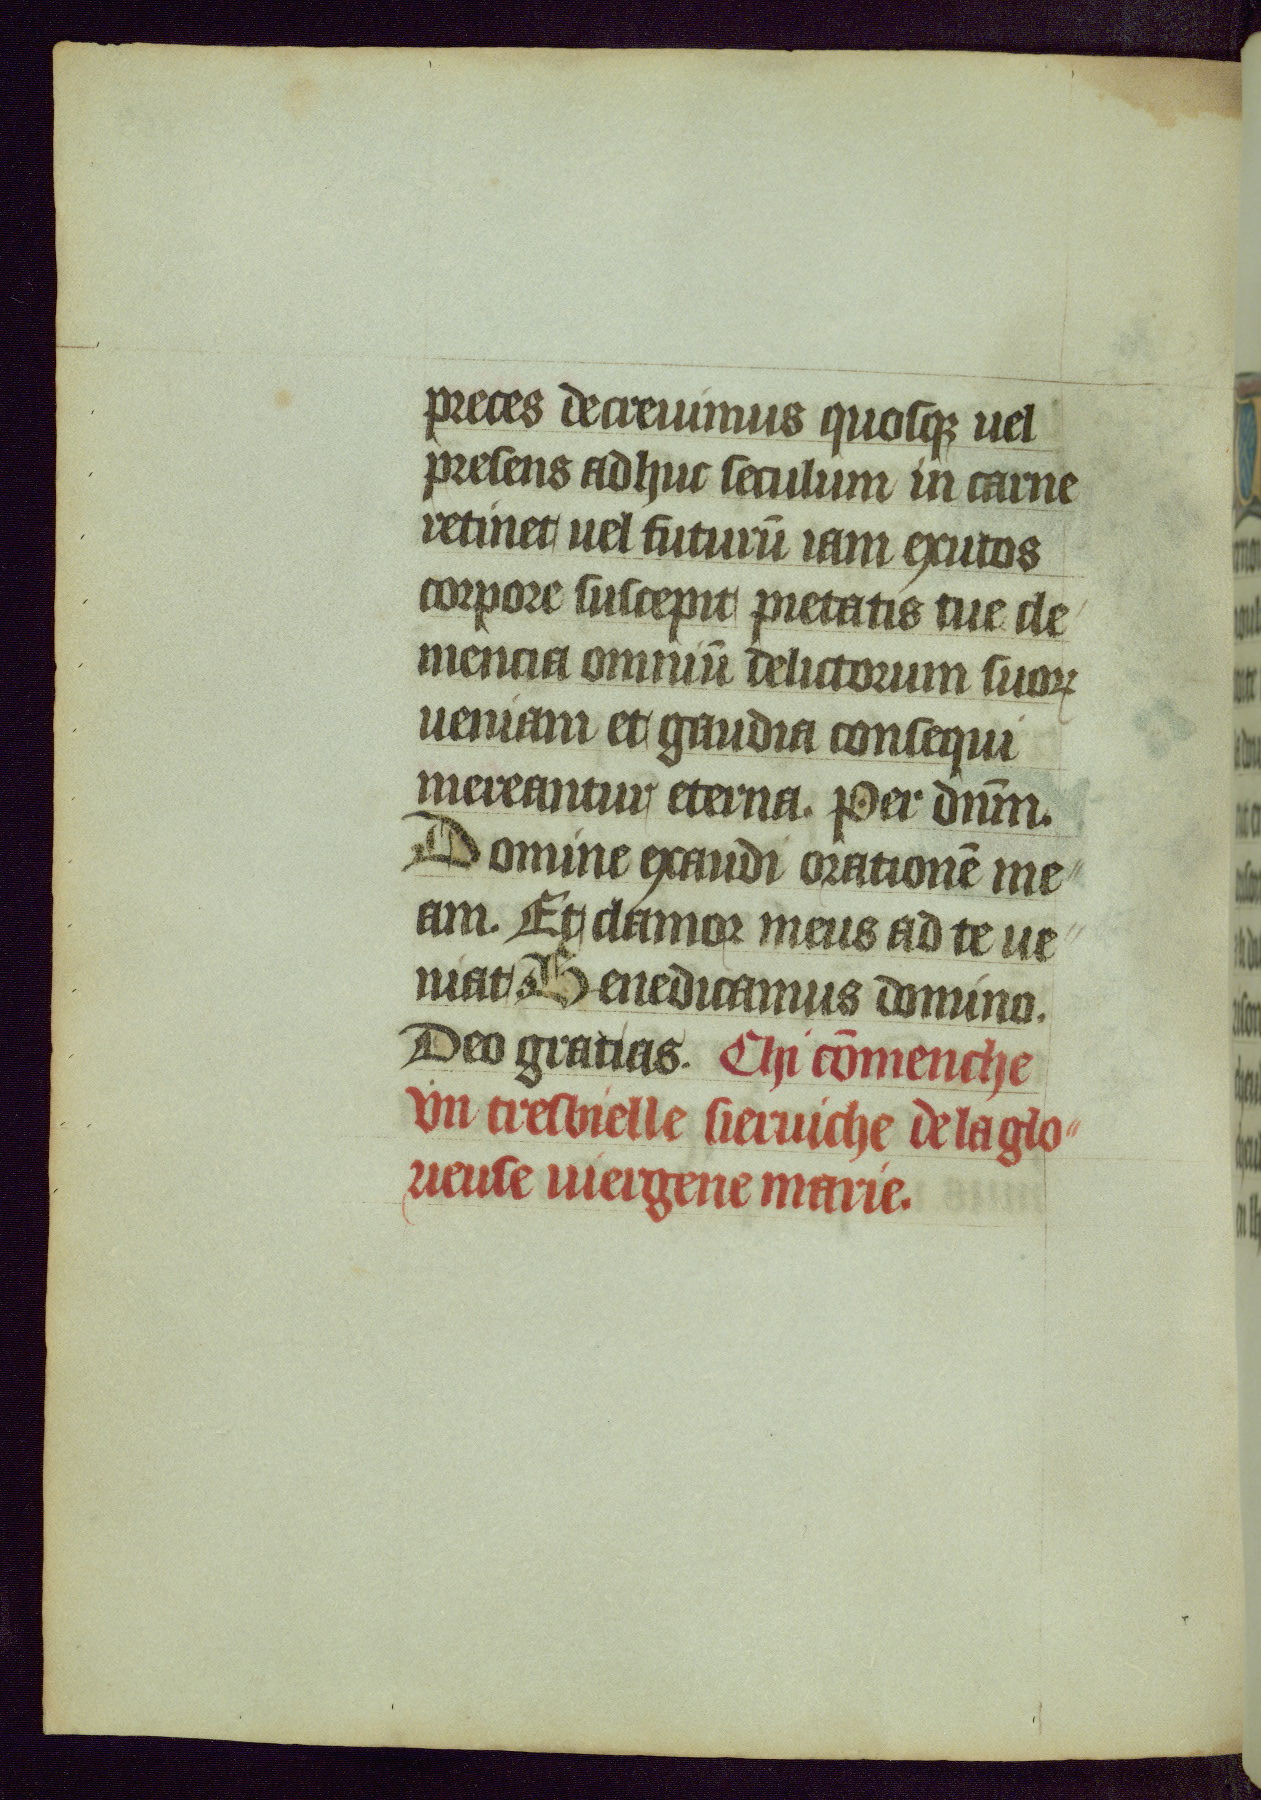 preces decreuimus quosqꝫ uel
presens adhuc seculum in carne
retinet uel futurū iam exutos
corpore suscepit pietatis tue cle
mencia omniū delictorum suoꝝ
ueniam et gaudia consequi
mereantur eterna. Per dn̄m.
Domine exaudi orationē me"
am. Et clamor meus ad te ue"
niat Benedicamus domino.
Deo gratias. Chi cōmenche
vn tresbielle sieruiche de la glo"
rieuse uiergene marie.